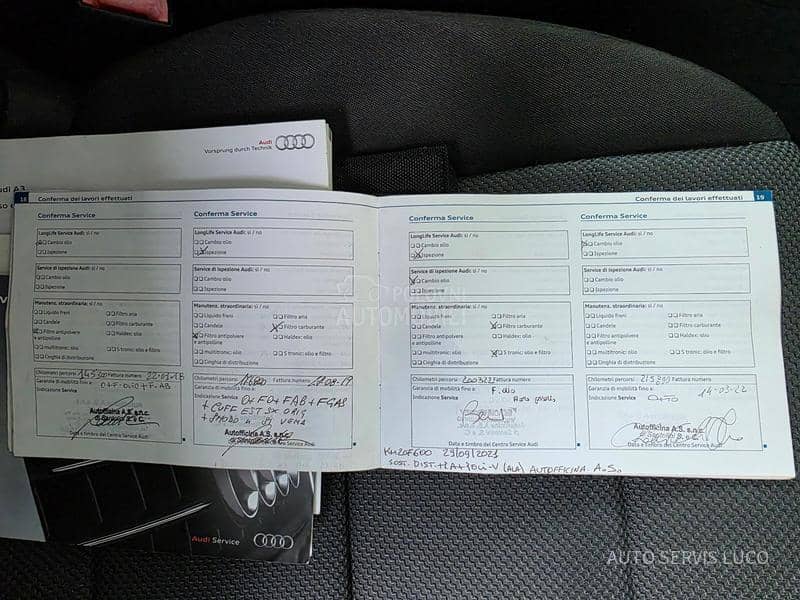 Audi
Vorsprung durch Technik
Audi A3
18 Conferma dei lavori effettuati
Conferma Service
LongLife Service Audi: sì / no
Cambio olio
Ispezione
Service di ispezione Audi: sì / no
Cambio olio
Ispezione
Manutenz. straordinaria: sì / no
Liquido freni
Filtro aria
Candele
Filtro carburante
Filtro antipolvere e antipolline
Haldex: olio
multitronic: olio
S tronic: olio e filtro
Cinghia di distribuzione
Chilometri percorsi: 145300 Fattura numero
Garanzia di mobilità fino a:
Indicazione Service O+F-OLIO+F-AB
Autofficina A.S. s.n.c.
Data e timbro del Centro Service Audi
Conferma Service
LongLife Service Audi: sì / no
Cambio olio
Ispezione
Service di ispezione Audi: sì / no
Cambio olio
Ispezione
Manutenz. straordinaria: sì / no
Liquido freni
Filtro aria
Candele
Filtro carburante
Filtro antipolvere e antipolline
Haldex: olio
multitronic: olio
S tronic: olio e filtro
Cinghia di distribuzione
Chilometri percorsi: Fattura numero
Garanzia di mobilità fino a:
Indicazione Service O+FO+FAB+FGAS
Autofficina A.S. s.n.c.
Data e timbro del Centro Service Audi
Conferma dei lavori effettuati 19
Conferma Service
LongLife Service Audi: sì / no
Cambio olio
Ispezione
Service di ispezione Audi: sì / no
Cambio olio
Ispezione
Manutenz. straordinaria: sì / no
Liquido freni
Filtro aria
Candele
Filtro carburante
Filtro antipolvere e antipolline
Haldex: olio
multitronic: olio
S tronic: olio e filtro
Cinghia di distribuzione
Chilometri percorsi: 200322 Fattura numero
Garanzia di mobilità fino a: F. olio
Indicazione Service
Data e timbro del Centro Service Audi
KM 207600 29/09/2021
SOST. DIST.+PA+POLI-V (ALA) AUTOFFICINA A.S.
Conferma Service
LongLife Service Audi: sì / no
Cambio olio
Ispezione
Service di ispezione Audi: sì / no
Cambio olio
Ispezione
Manutenz. straordinaria: sì / no
Liquido freni
Filtro aria
Candele
Filtro carburante
Filtro antipolvere e antipolline
Haldex: olio
multitronic: olio
S tronic: olio e filtro
Cinghia di distribuzione
Chilometri percorsi: 215300 Fattura numero
Garanzia di mobilità fino a: 14-03-22
Indicazione Service
Autofficina A.S. s.n.c.
Data e timbro del Centro Service Audi
Audi Service
POLOVNI
AUTOMOBILI
AUTO SERVIS LUCO